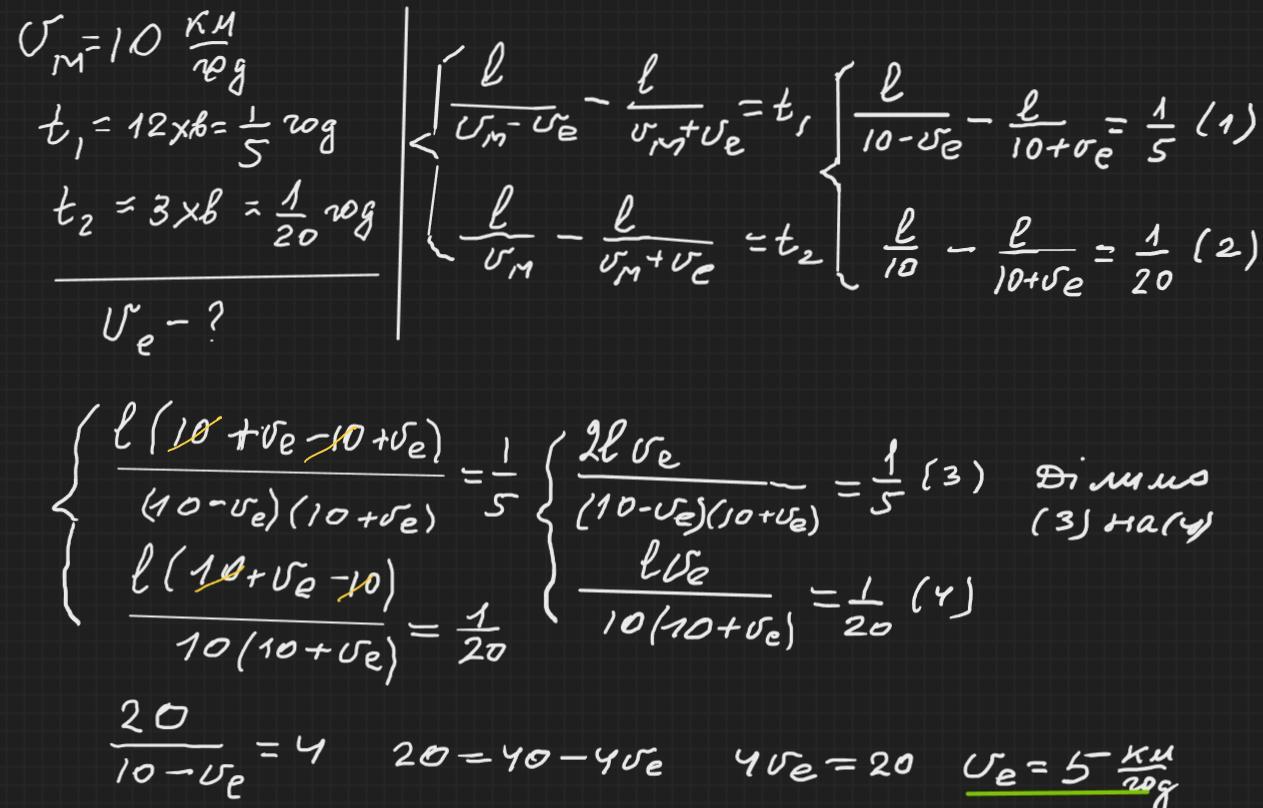 υ_м = 10 км/год
t₁ = 12 хв = 1/5 год
t₂ = 3 хв = 1/20 год
υ_e - ?
{ l/(υ_м - υ_e) - l/(υ_м + υ_e) = t₁
l/υ_м - l/(υ_м + υ_e) = t₂
{ l/(10 - υ_e) - l/(10 + υ_e) = 1/5 (1)
l/10 - l/(10 + υ_e) = 1/20 (2)
{ l(10 + υ_e - 10 + υ_e)/((10 - υ_e)(10 + υ_e)) = 1/5
l(10 + υ_e - 10)/(10(10 + υ_e)) = 1/20
{ 2lυ_e/((10 - υ_e)(10 + υ_e)) = 1/5 (3)
lυ_e/(10(10 + υ_e)) = 1/20 (4)
Ділимо
(3) на (4)
20/(10 - υ_e) = 4
20 = 40 - 4υ_e
4υ_e = 20
υ_e = 5 км/год